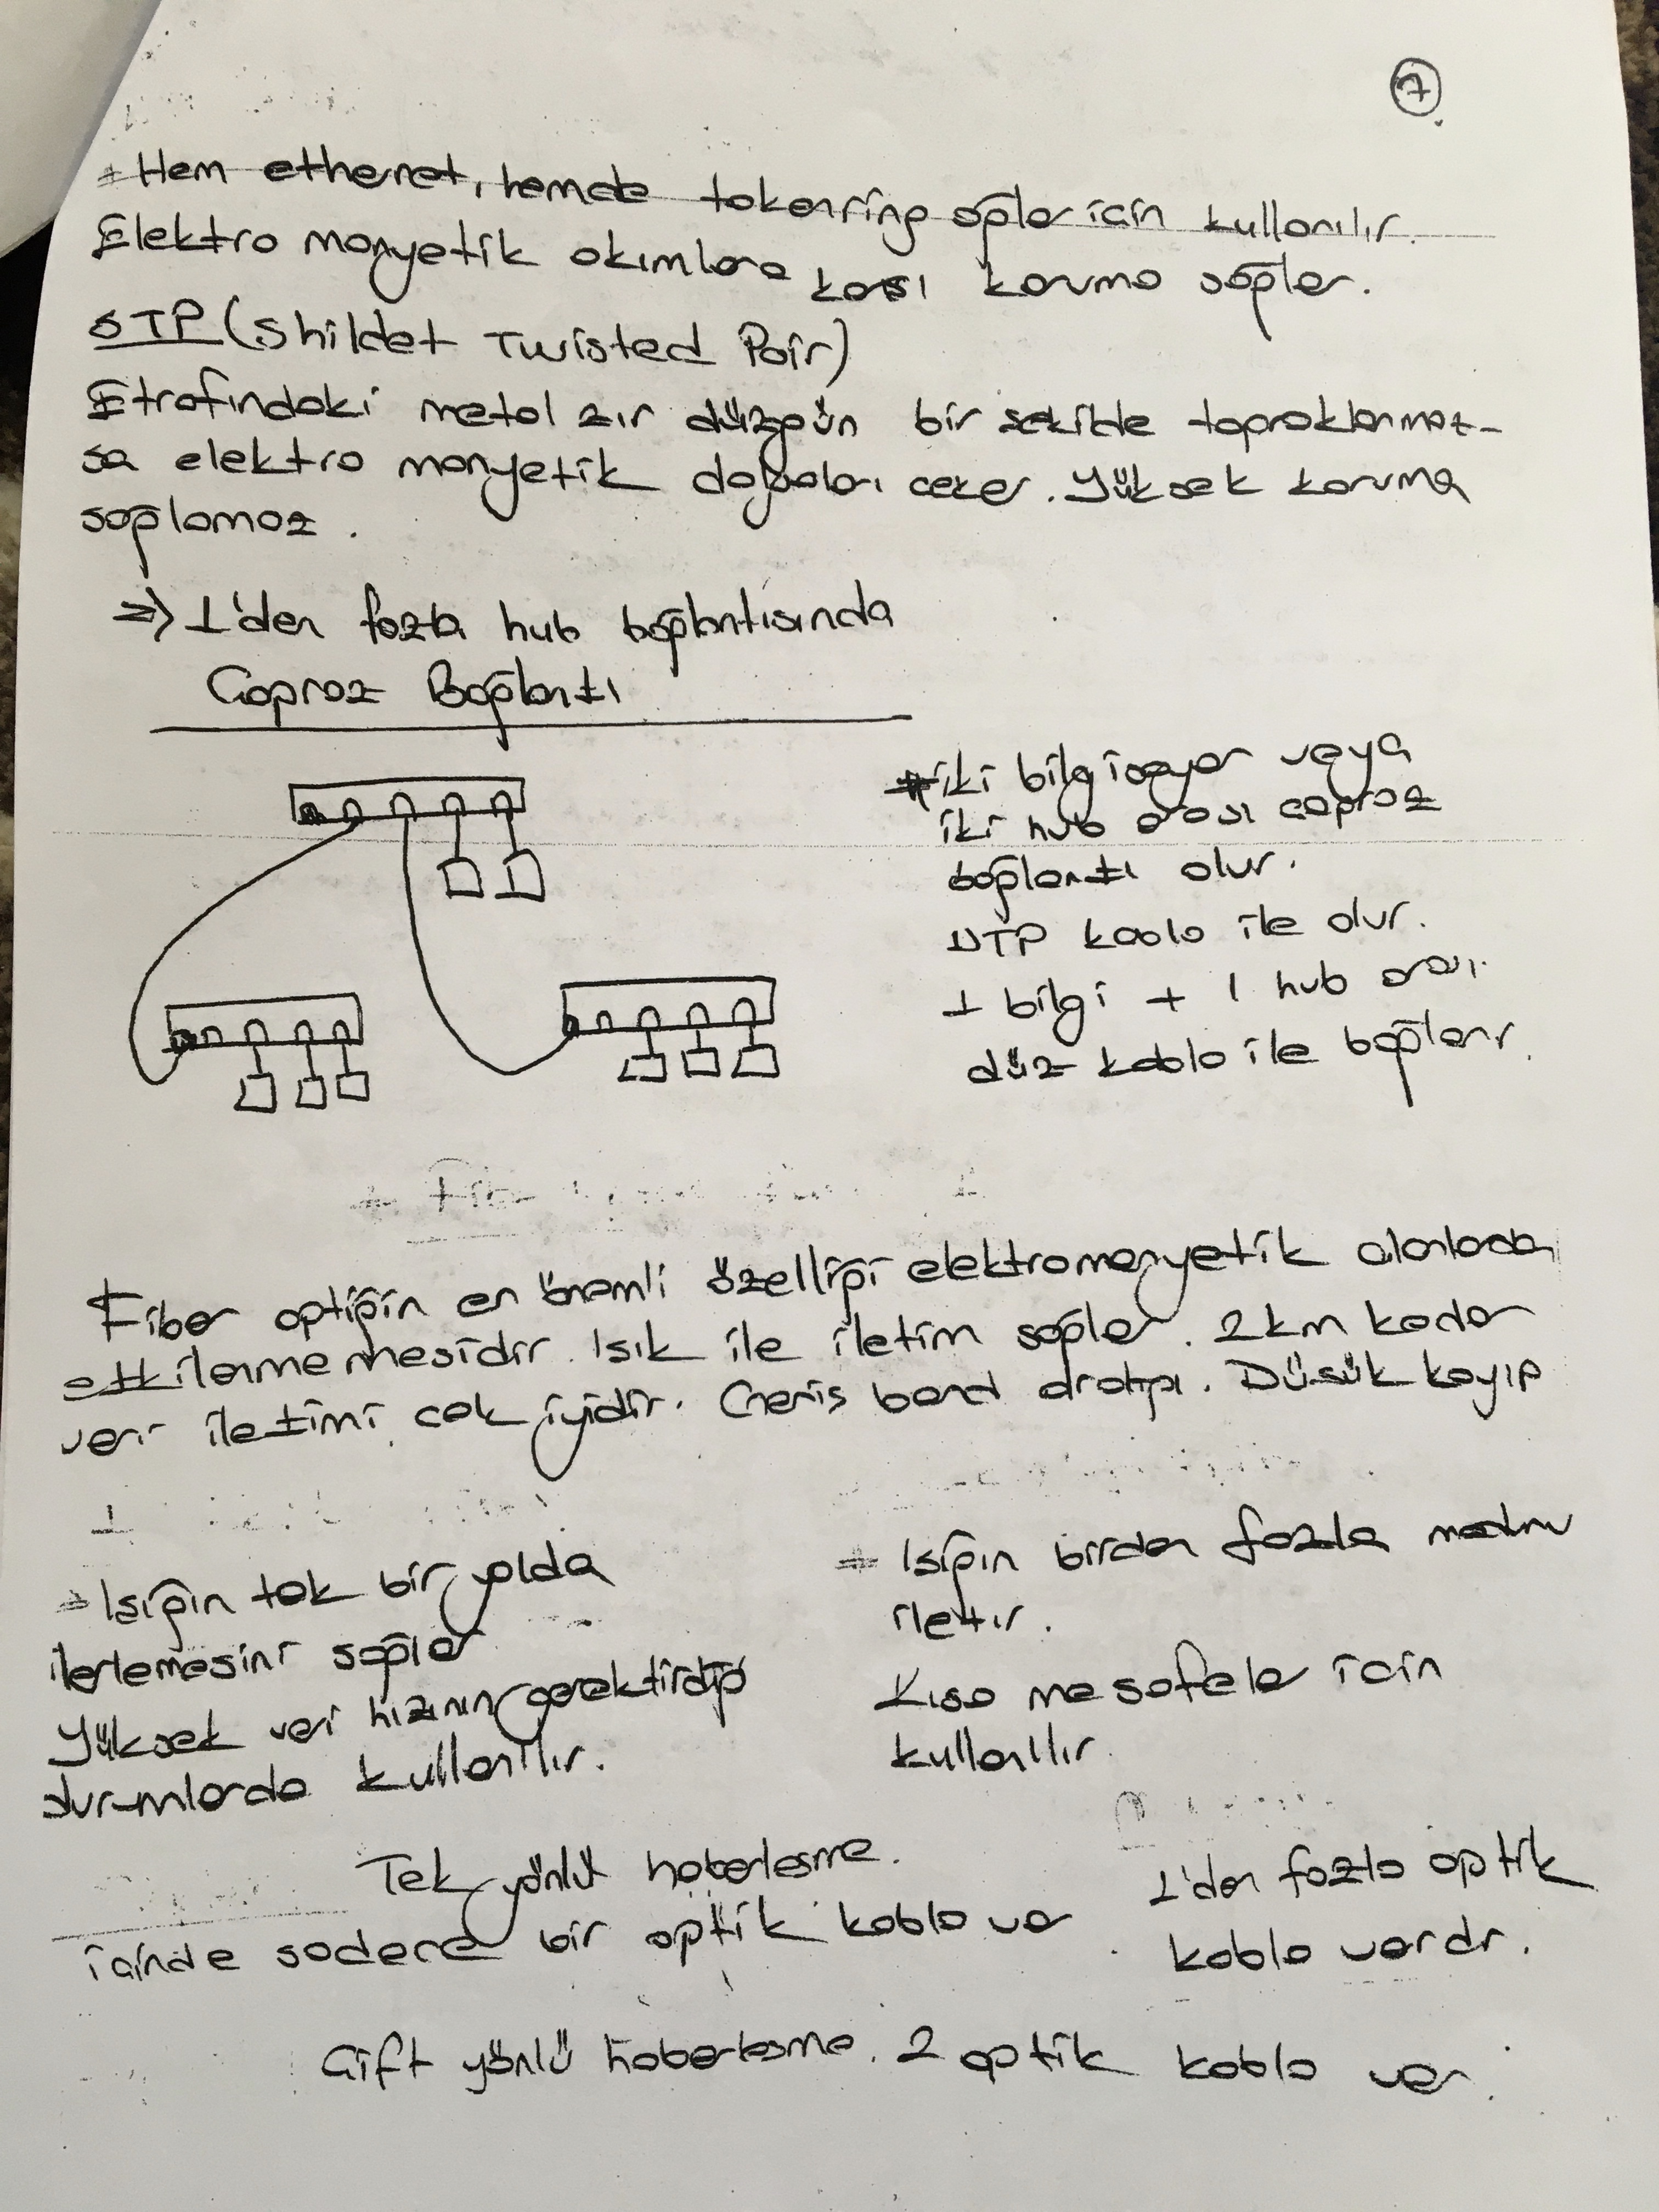 7
* Hem ethernet, hemde tokenring ağlar için kullanılır.
Elektro manyetik akımlara karşı koruma sağlar.
STP (Shildet Twisted Pair)
Etrafındaki metal zır düzgün bir şekilde topraklanmaz-
sa elektro manyetik dalgaları çeker. Yüksek koruma
sağlamaz.
=> 1'den fazla hub bağlantısında
Çapraz Bağlantı
* iki bilgisayar veya
iki hub arası çapraz
bağlantı olur.
UTP kablo ile olur.
1 bilgi + 1 hub arası
düz kablo ile bağlanır.
Fiber optiğin en önemli özelliği elektromanyetik alanlardan
etkilenmemesidir. Işık ile iletim sağlar. 2 km kadar
veri iletimi çok iyidir. Geniş band aralığı. Düşük kayıp
* Işığın tek bir yolda
ilerlemesini sağlar
Yüksek veri hızının gerektirdiği
durumlarda kullanılır.
* Işığın birden fazla
iletir.
Kısa mesafeler için
kullanılır.
Tek yönlü haberleşme.
içinde sadece bir optik kablo var
1'den fazla optik
kablo vardır.
Çift yönlü haberleşme. 2 optik kablo var.